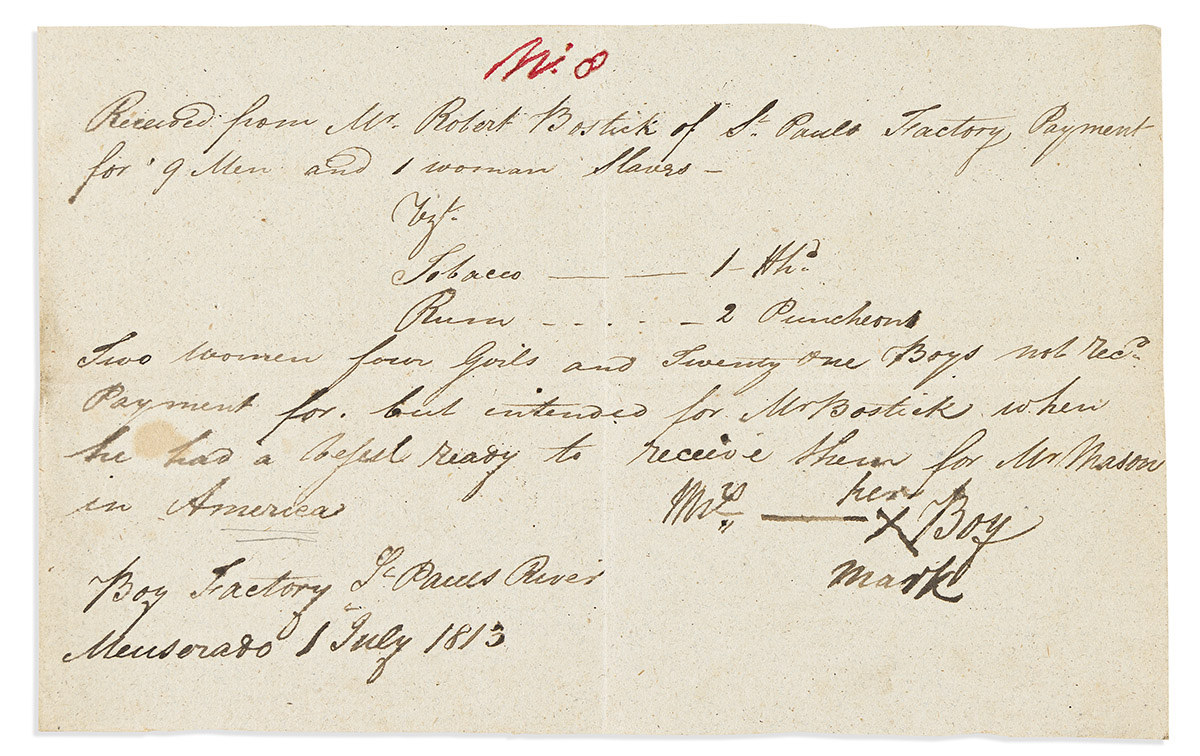 No. 8
Received from Mr. Robert Bostick of St. Pauls Factory Payment
for 9 Men and 1 woman Slaves –
Vizt.
Tobacco — — 1 – Hhd.
Rum - - . . - – 2 Puncheons
Two women four Girls and Twenty one Boys not recd.
Payment for. but intended for Mr Bostick when
he had a Vessel ready to receive them for Mr Mason
in America
Mrs — her X Boy
mark
Boy Factory St Pauls River
Mensorado 1 July 1813